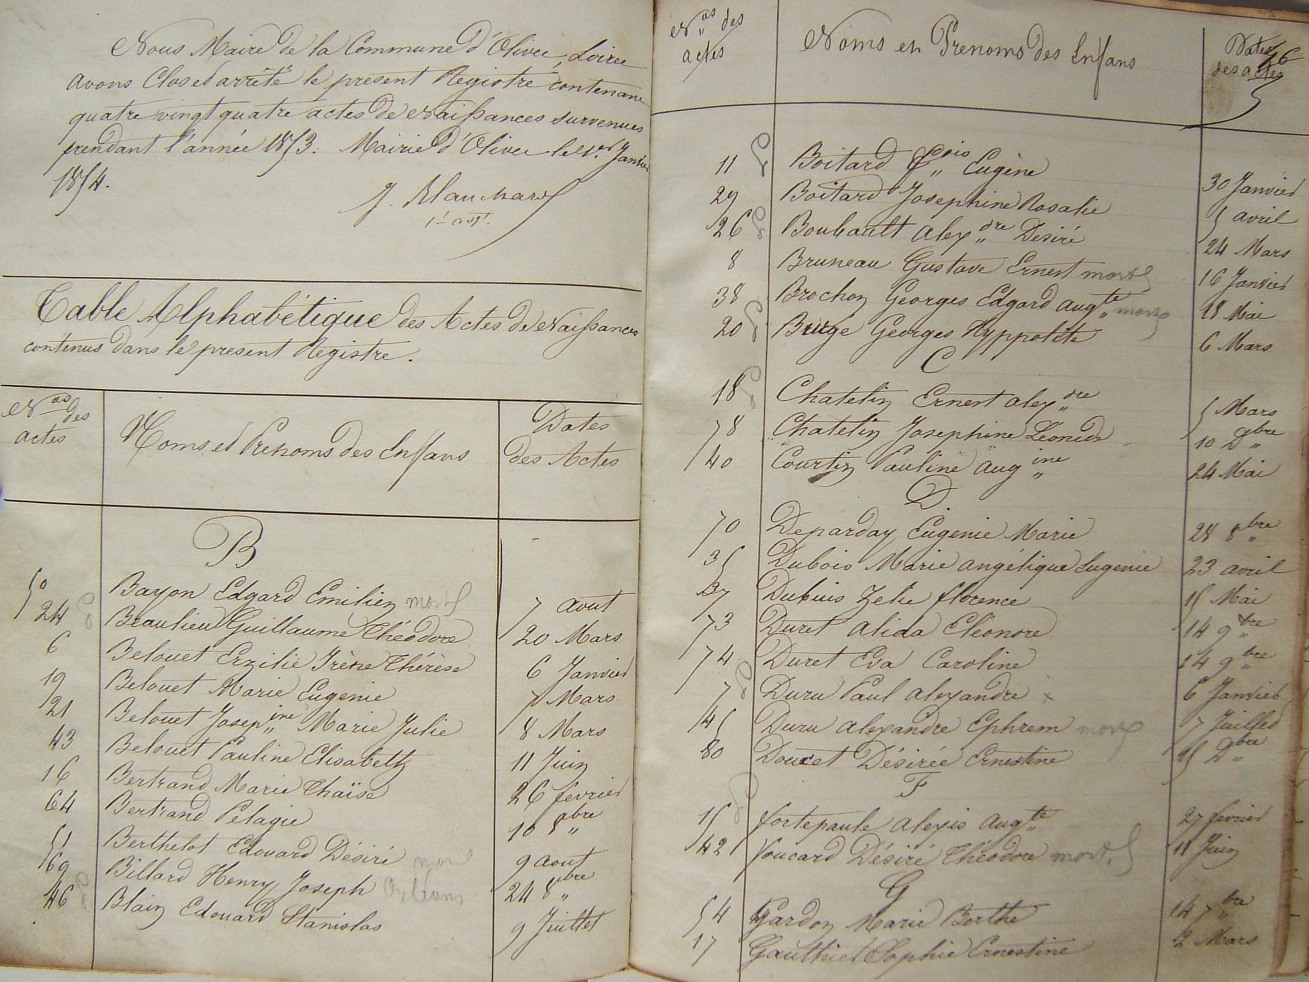 Nous Maire de la Commune d'Olivet, Loiret
avons Clos et arrêté le présent Registre contenant
quatre vingt quatre actes de Naissances survenues
pendant l'année 1853. Mairie d'Olivet le 1er Janvier
1854.
Table Alphabétique des Actes de Naissances
contenus dans le present Registre.
Nos des actes
Noms et Prenoms des Enfans
Dates des Actes
B
50 Bayon Edgard Emilien mort 7 aout
24 Beaulieu Guillaume Théodore 20 Mars
6 Belouet Erzilie Irène Thérèse 6 Janvier
19 Belouet Marie Eugenie 7 Mars
21 Belouet Josepine Marie Julie 8 Mars
43 Belouet Pauline Elisabeth 11 Juin
16 Bertrand Marie Thaïse 26 fevrier
64 Bertrand Pelagie 10 8bre
51 Berthelot Edouard Désiré mort 9 aout
69 Billard Henry Joseph Orléans 24 8bre
46 Blain Edouard Stanislas 9 Juillet
Nos des actes
Noms et Prenoms des Enfans
Dates des actes
11 Boitard fois Eugène 30 Janvier
29 Boitard Josephine Rosalie 5 avril
26 Boubault alexdre Desiré 24 Mars
8 Bruneau Gustave Ernest mort 16 Janvier
38 Brochon Georges Edgard augte mort 18 Mai
20 Georges Hyppolite 6 Mars
C
18 Chatelin Ernest alexdre 5 Mars
78 Chatelin Josephine Léonide 10 Dbre
40 Courtin Pauline augine 24 Mai
D
70 Deparday Eugenie Marie 28 8bre
35 Dubois Marie angélique Eugenie 23 avril
37 Zelie florence 15 Mai
73 Duret Alida Eléonore 14 9bre
74 Duret Eva Caroline 14 9bre
7 Duru Paul alexandre x 6 Janvier
45 Duru Alexandre Ephrem mort 7 Juillet
80 Doucet Désirée Ernestine 15 Dbre
F
15 fortepaule alexis augte 27 fevrier
42 foucard Désiré Théodore mort 11 Juin
G
54 Gardon Marie Berthe 14 7bre
17 Gauthier Sophie Ernestine 2 Mars